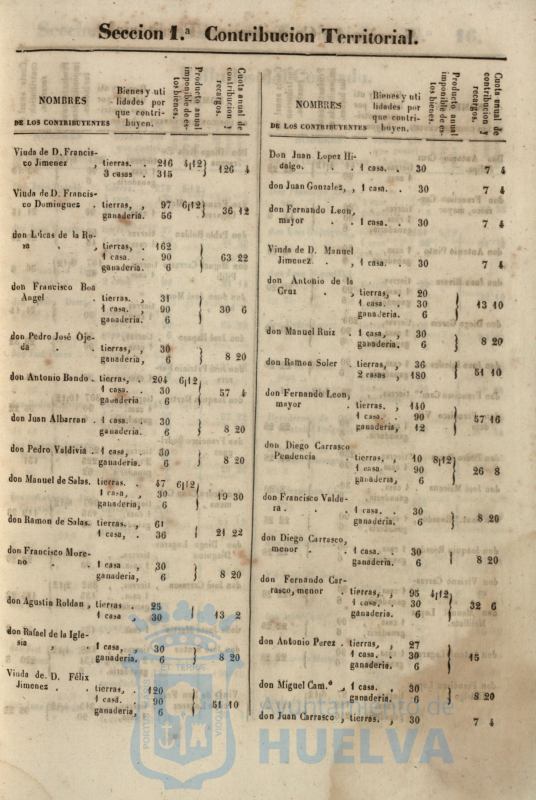 Seccion 1.ª Contribucion Territorial.
NOMBRES
DE LOS CONTRIBUYENTES
Bienes y uti
lidades por
que contri-
buyen.
Producto anual
imponible de es-
tos bienes.
Cuota anual de
contribucion y
recargos.
Viuda de D. Francis-
co Jimenez , tierras. . 216 4|12 } 126 4
3 casas . 315
Viuda de D. Francis-
co Dominguez . tierras, , 97 6|12 } 36 12
ganaderia. 56
don Lucas de la Ro-
sa . , tierras, . 162
1 casa. . 90 } 63 22
ganaderia. 6
don Francisco Boa
Angel . tierras. , 31
1 casa, , 90 } 30 6
ganaderia. 6
don Pedro José Oje-
da . . tierras, , 30 } 8 20
ganaderia, 6
don Antonio Bando . tierras, , 204 6|12
1 casa. . 30 } 57 4
ganaderia 6
don Juan Albarran . 1 casa. . 30 } 8 20
ganaderia. 6
don Pedro Valdivia . 1 casa, . 30 } 8 20
ganaderia. 6
don Manuel de Salas. tierras. . 47 6|12
1 casa, , 30 } 19 30
ganaderia, 6
don Ramon de Salas. tierras. , 61
1 casa, . 36 } 21 22
don Francisco More-
no . . 1 casa , 30 } 8 20
ganaderia, 6
don Agustin Roldan , tierras . 25
1 casa , 30 } 13 2
don Rafael de la Igle-
sia , . 1 casa, , 30 } 8 20
ganaderia. 6
Viuda de. D. Félix
Jimenez . . tierras, . 120
1 casa. . 90 } 51 10
ganaderia, 6
NOMBRES
DE LOS CONTRIBUYENTES
Bienes y uti
lidades por
que contri-
buyen.
Producto anual
imponible de es-
tos bienes.
Cuota anual de
contribucion y
recargos.
Don Juan Lopez Hi-
dalgo. . . 1 casa. . 30 7 4
don Juan Gonzalez, , 1 casa. . 30 7 4
don Fernando Leon,
mayor . . 1 casa. . 30 7 4
Viuda de D. Manuel
Jimenez. . , 1 casa. . 30 7 4
don Antonio de la
Cruz . , tierras, . 20
1 casa. . 30 } 13 10
ganaderia. 6
don Manuel Ruiz . 1 casa, , 30 } 8 20
ganaderia. 6
don Ramon Soler . tierras, , 36
2 casas , 180 } 51 10
don Fernando Leon,
mayor . tierras. , 140
1 casa. . 90 } 57 16
ganaderia, 12
don Diego Carrasco
Pendencia . tierras, , 10 8|12
1 casa . 90 } 26 8
ganaderia, 6
don Francisco Valde-
ra . . . 1 casa. . 30 } 8 20
ganaderia. 6
don Diego Carrasco,
menor . . 1 casa. . 30 } 8 20
ganaderia. 6
don Fernando Car-
rasco, menor . tierras, , 95 4|12
1 casa. . 30 } 32 6
ganaderia. 6
don Antonio Perez . tierras, , 27
1 casa. . 30 } 15
ganaderia. 6
don Miguel Cam.º , 1 casa. . 30 } 8 20
ganaderia. 6
don Juan Carrasco , tierras. . 30 7 4
Ayuntamiento de
HUELVA